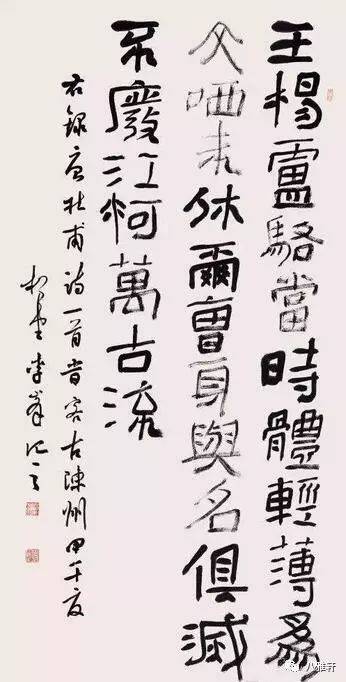 王楊盧駱當時體輕薄爲
文哂未休爾曹身與名俱滅
不廢江河萬古流
右錄唐杜甫詩一首旹客古陳州甲午夏
李峯記之
八雅轩